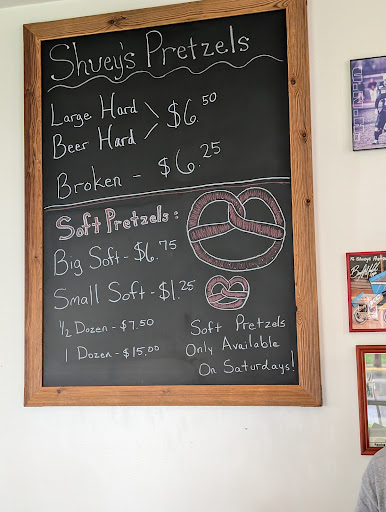 Shuey's Pretzels
Large Hard
Beer Hard
$6.50
Broken - $6.25
Soft Pretzels:
Big Soft - $6.75
Small Soft - $1.25
1/2 Dozen - $7.50
1 Dozen - $15.00
Soft Pretzels
Only Available
On Saturdays!